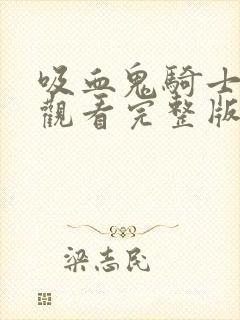 吸血鬼騎士
觀看完整版
梁志民